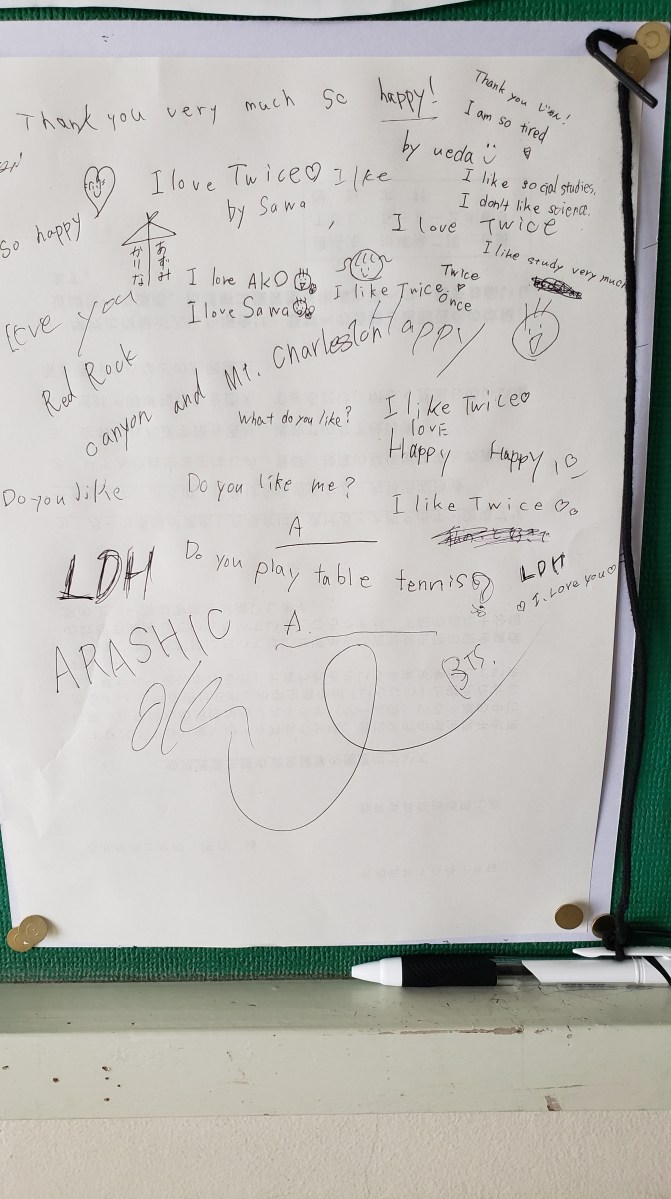 Thank you very much so happy!
Thank you
I am so tired
by ueda
I like social studies.
I don't like science.
I love Twice♡ I like
by Sawa
I love Twice
I like study very much
so happy
あずみ
かりな
I love AKO
I love Sawa
I like Twice
Twice
Once
Love you
Happy
Red Rock
canyon and Mt. Charleston
I like Twice♡
LOVE
What do you like?
Happy Happy
Do you like
Do you like me?
I like Twice ♡
A
LDH
Do you play table tennis?
LDH
♡ I Love you♡
A.
ARASHIC
BTS.